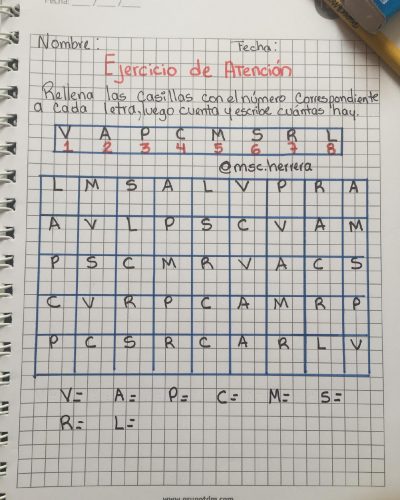 Fecha: __/__/__
Nombre: Fecha:
Ejercicio de Atención
Rellena las casillas con el número correspondiente
a cada letra, luego cuenta y escribe cuántas hay.
V A P C M S R L
1 2 3 4 5 6 7 8
@msc.herrera
L M S A L V P R A
A V L P S C V A M
P S C M R V A C S
C V R P C A M R P
P C S R C A R L V
V= A= P= C= M= S=
R= L=